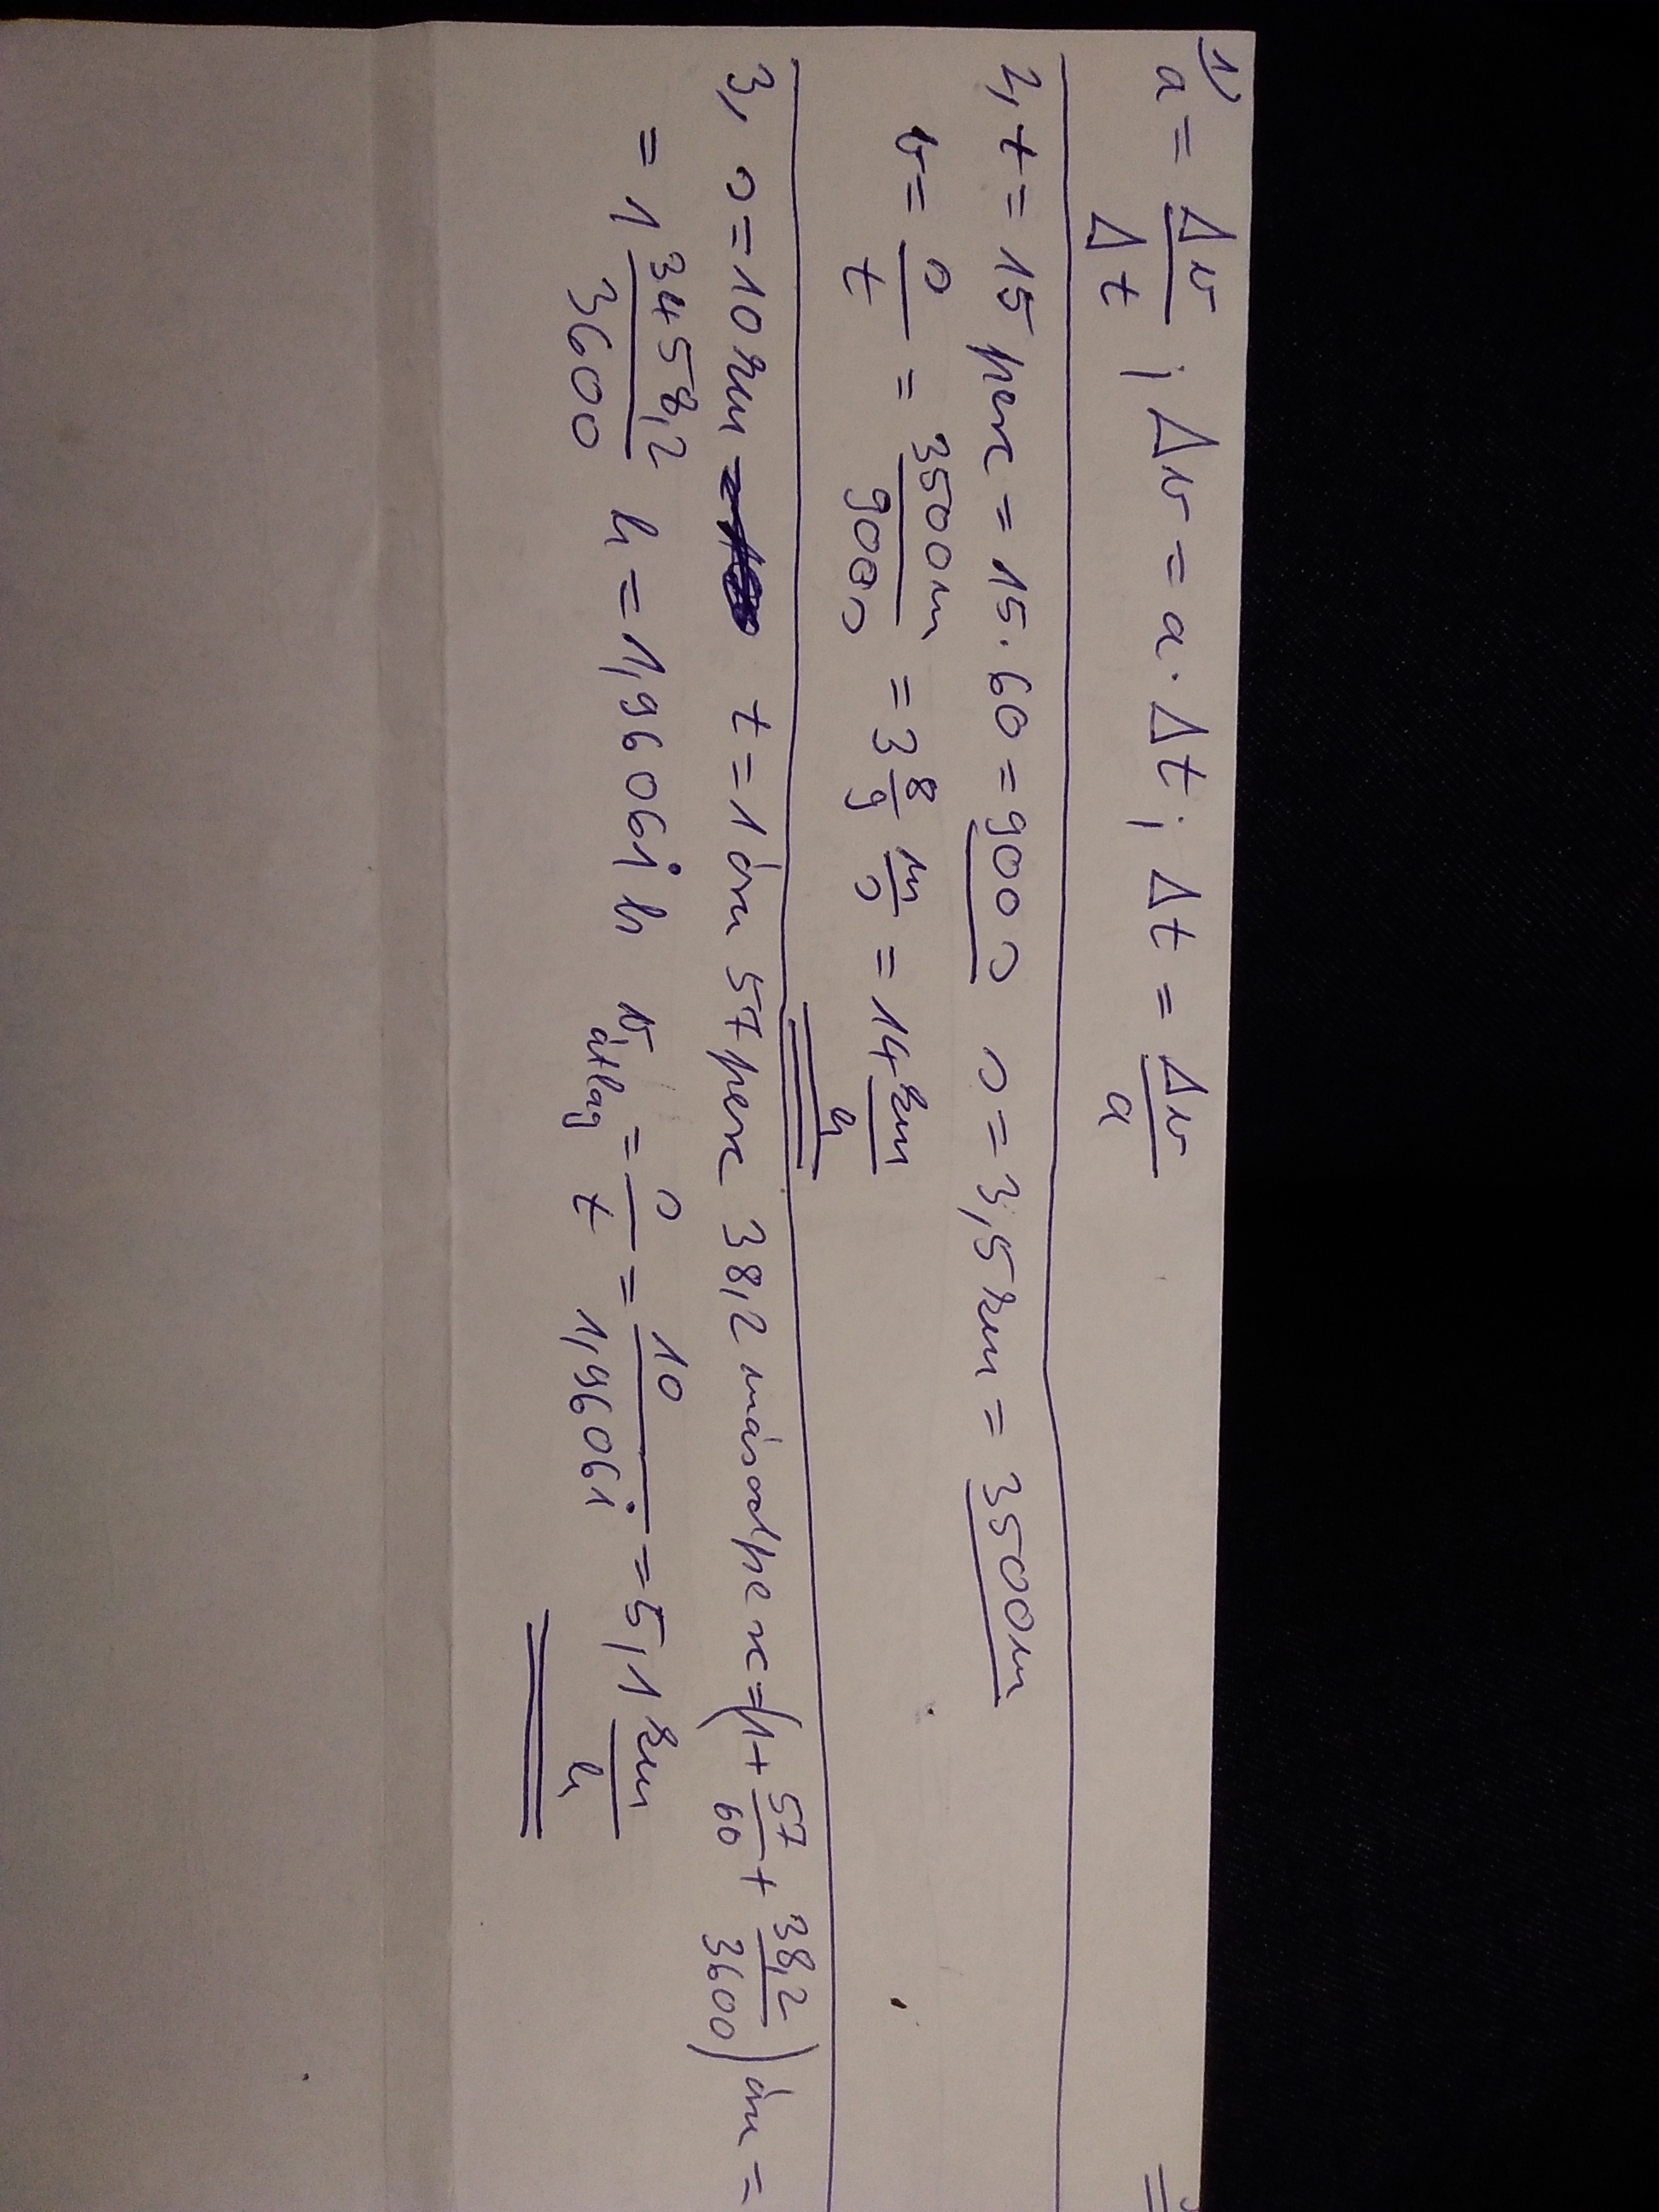 1)
a = Δv/Δt ; Δv = a · Δt ; Δt = Δv/a
2, t = 15 perc = 15 · 60 = 900 s s = 3,5 km = 3500 m
v = s/t = 3500 m/900 s = 3 8/9 m/s = 14 km/h
3, s = 10 km t = 1 óra 57 perc 38,2 másodperc = (1 + 57/60 + 38,2/3600) óra =
= 1 3458,2/3600 h = 1,96061̇ h v átlag = s/t = 10/1,96061̇ = 5,1 km/h